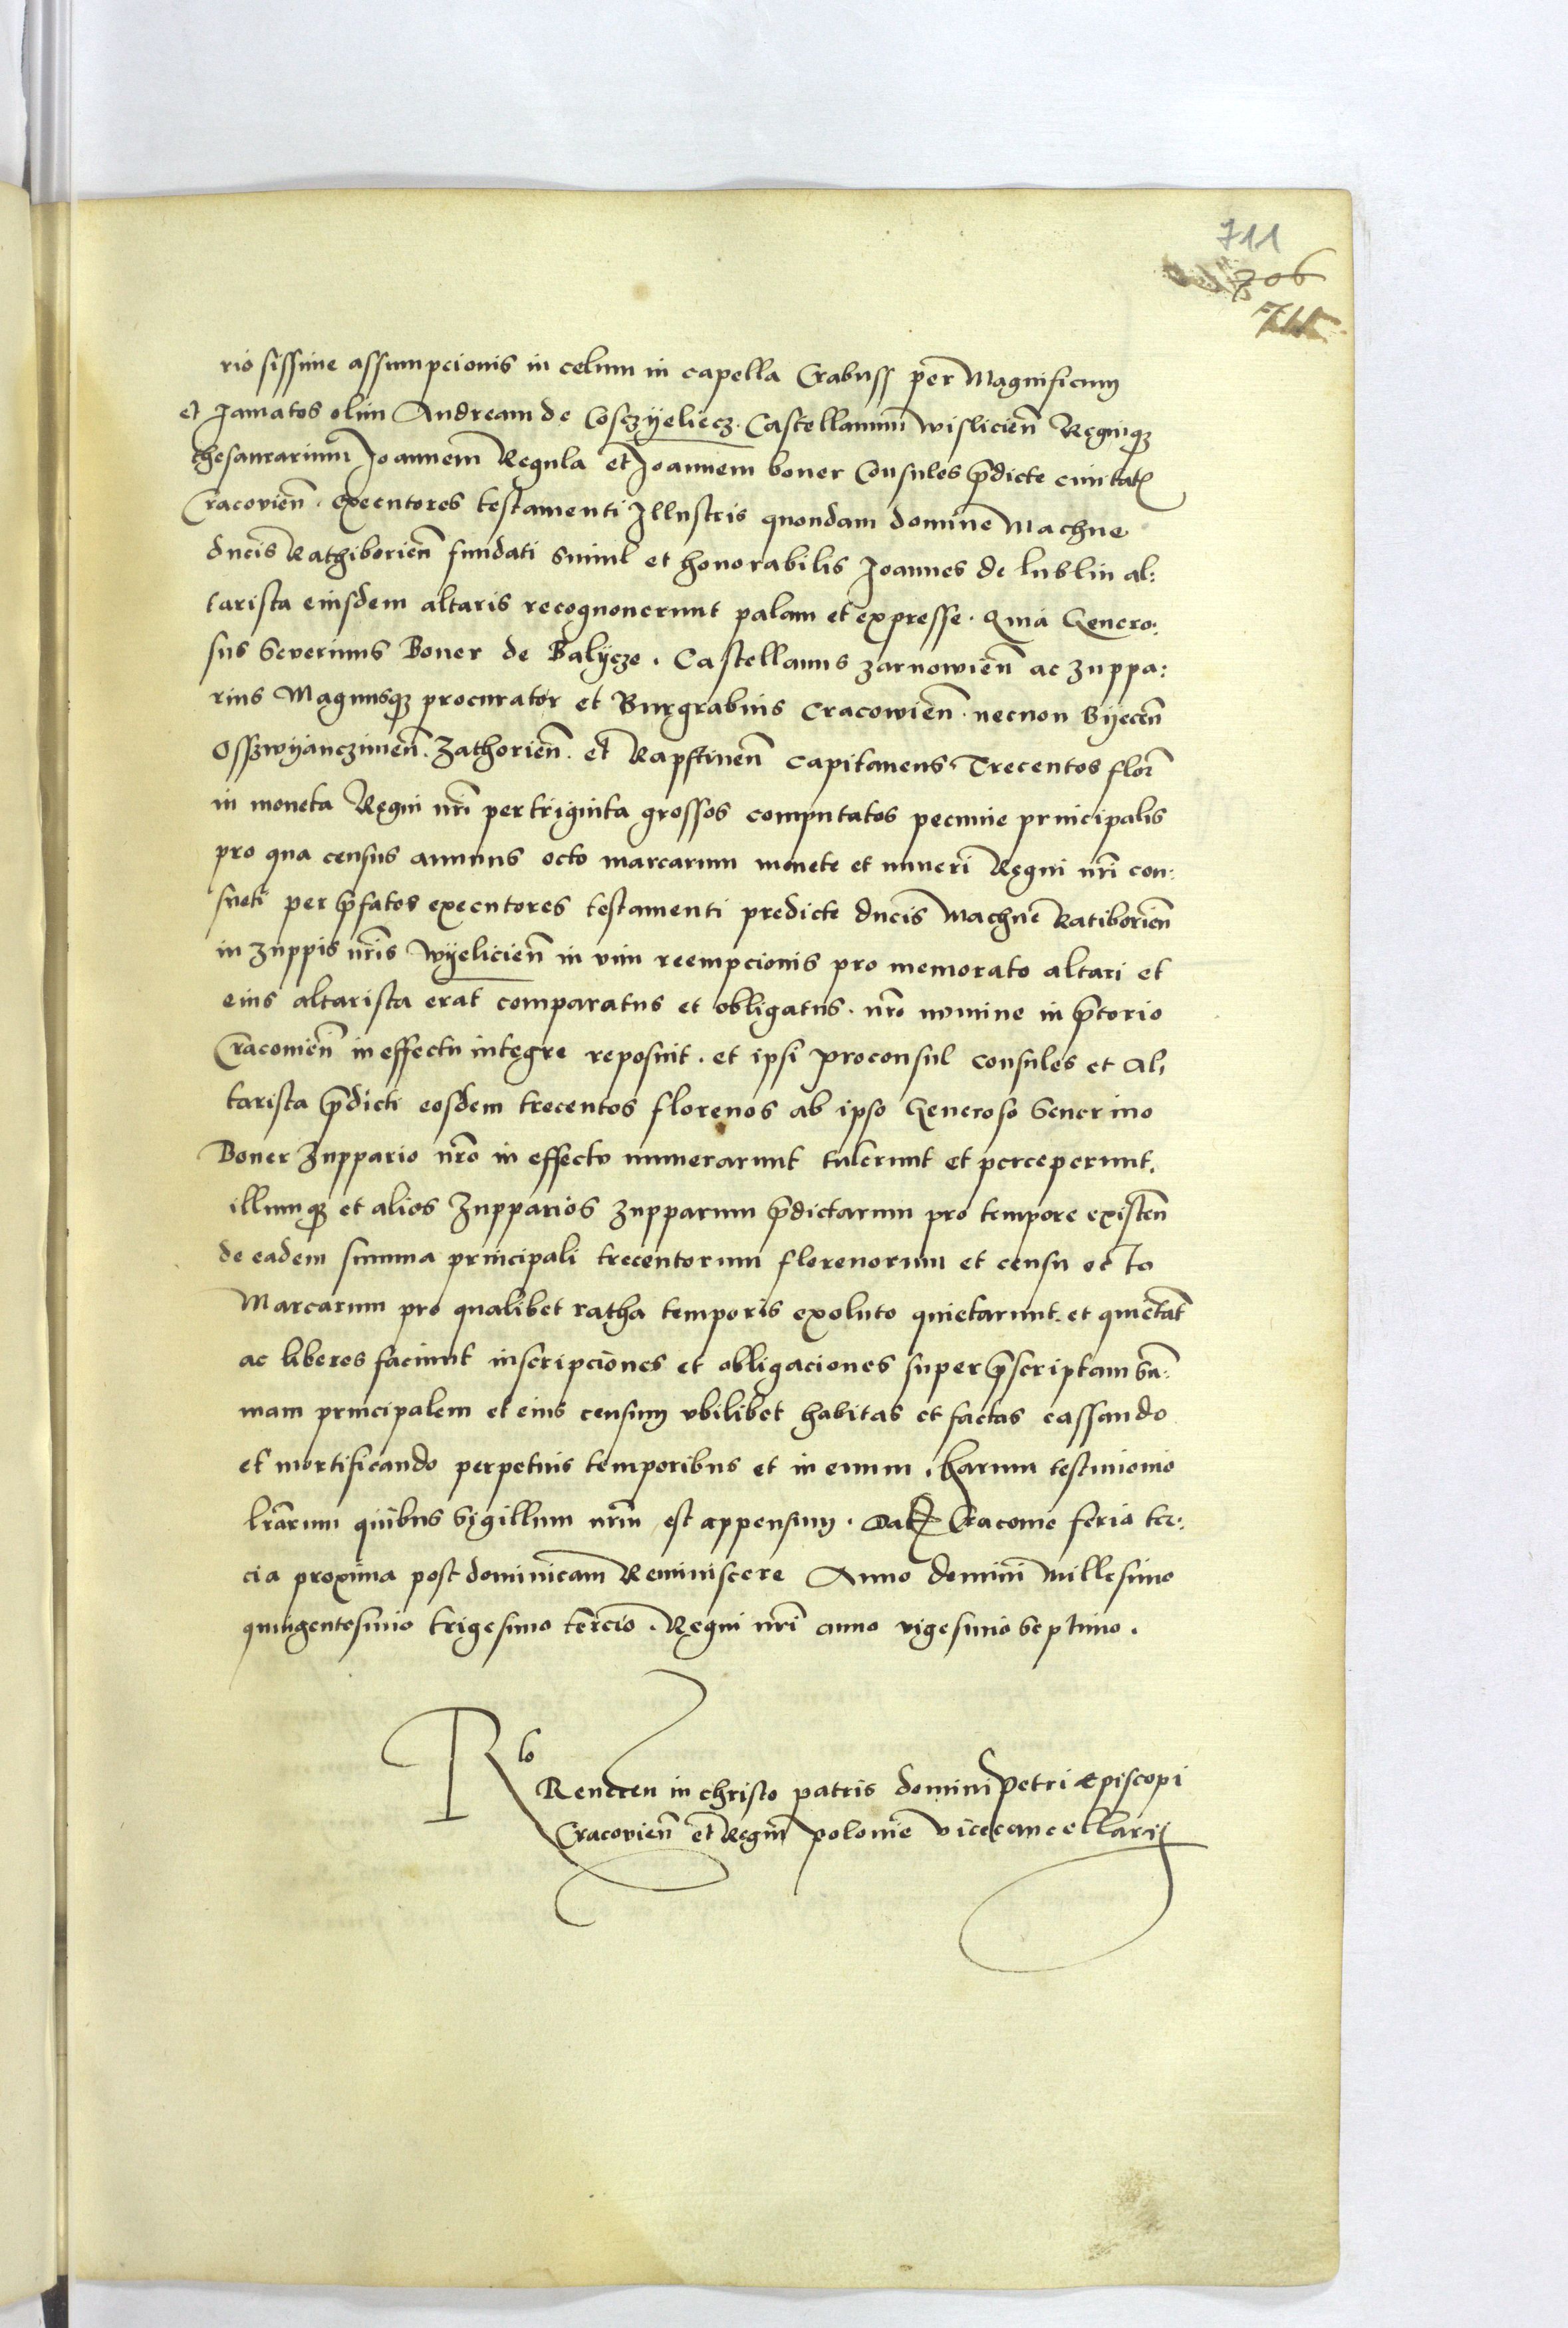 711
206
715
riosissime assumpcionis in celum in capella Crabuss per Magnificum
et famatos olim Andream de Cosczyeliecz. Castellanum wisliciеn̄ Regniqȝ
thesaurarium Joannem Regula et Joannem boner Consules p̄dicte ciuitatꝭ
Cracovien̄. executores testamenti Illustris quondam domine Machne
ducis Rathiborien̄ fundati simul et honorabilis Joannes de lublin al:
tarista eiusdem altaris recognouerunt palam et expresse. Quia Genero:
sus Severinus Boner de Balycze. Castellanus zarnowien̄ ac zuppa:
rius Magnusqȝ procurator et Burgrabius Cracowien̄. necnon Byecen̄
Osszwyanczimen̄. Zathorien̄. et Rapstinen̄ capitaneus Trecentos flor̄
in moneta Regni nr̄i per triginta grossos computatos pecunie principalis
pro qua census annuus octo marcarum monete et numeri Regni nr̄i con:
sueti per p̄fatos executores testamenti predicte ducis Machne Ratiborien̄
in zuppis nr̄is wyelicien̄ in vim reempcionis pro memorato altari et
eius altarista erat comparatus et obligatus. nr̄o nomine in p̄torio
Cracouien̄ in effectu integre reposuit. et ipsi proconsul consules et al,
tarista p̄dicti eosdem trecentos florenos ab ipso Generoso Seuerino
Boner Zuppario nr̄o in effectu numerarunt tulerunt et perceperunt,
illumqȝ et alios Zupparios zupparum p̄dictarum pro tempore existen̄
de eadem summa principali trecentorum florenorum et censu octo
Marcarum pro qualibet ratha temporis exoluto quietarunt. et quietat̄
ac liberos faciunt inscripciones et obligaciones super p̄scriptam sū:
mam principalem et eius censum vbilibet habitas et factas cassando
et mortificando perpetuis temporibus et in euum. harum testimonio
lr̄arum quibus Sigillum nr̄um est appensum. Datꝭ Cracouie feria ter:
cia proxima post dominicam Reminiscere Anno domini Millesimo
quingentesimo trigesimo tercio. Regni nr̄i anno vigesimo septimo.
Rlo
Reueren in christo patris domini Petri episcopi
Cracovien̄ et Regni polonie vicecancellarij